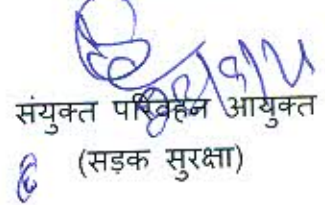 संयुक्त परिवहन आयुक्त
(सड़क सुरक्षा)